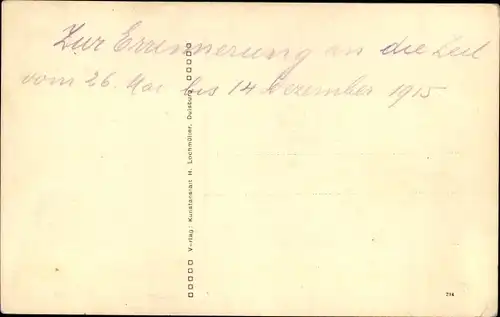 Zur Errennerung an die Zeit
vom 26. Mai bis 14 Dezember 1915
Verlag: Kunstanstalt H. Lochmüller, Duisburg